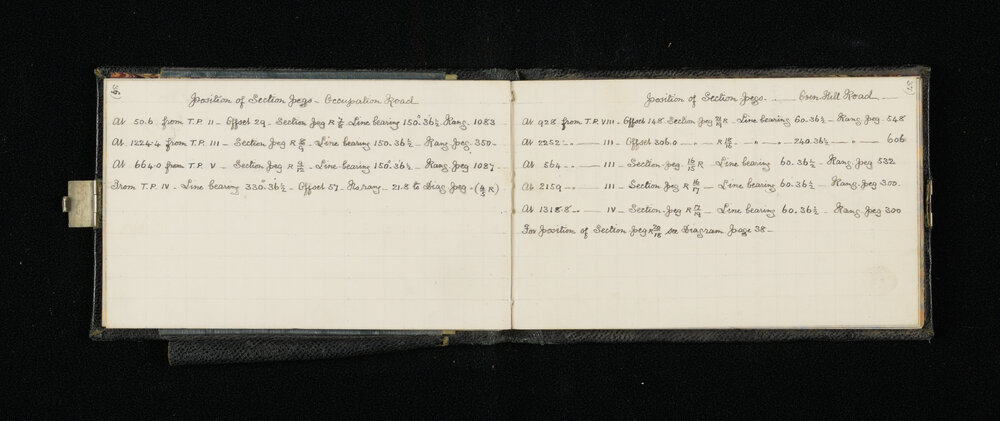 36)
Position of Section Pegs - Occupation Road
At 50.6 from T.P. II - Offset 29 - Section Peg R - Line bearing 150°.36½ - Rang. 1083
At 1224.4 from T.P. III - Section Peg R - Line bearing 150.36½ - Rang Peg. 350 -
At 664.0 from T.P. V - Section Peg R - Line bearing 150.36½ - Rang Peg 1087 -
From T.P. IV - Line bearing 330°.36½ - Offset 57 - - 21.8 to Diag Peg - (R)
37
Position of Section Pegs - Oven Hill Road
At 928 from T.P. VIII - Offset 148. Section Peg R - Line bearing 60.36½ - Rang Peg 548
At 2252 - " - III - Offset 306.0 - " - R 18/16 - " - " - 240.36½ - " 606
At 564 - " - III - Section Peg 16/15 R - Line bearing 60.36½ - Rang. Peg 532
At 2159 - " - III - Section Peg R 16/17 - Line bearing 60.36½ - Rang. Peg 300.
At 1318.8 - " - IV - Section Peg R 17/19 - Line bearing 60.36½ - Rang Peg 300
For position of Section Peg R 20/18 see Diagram page 38 -